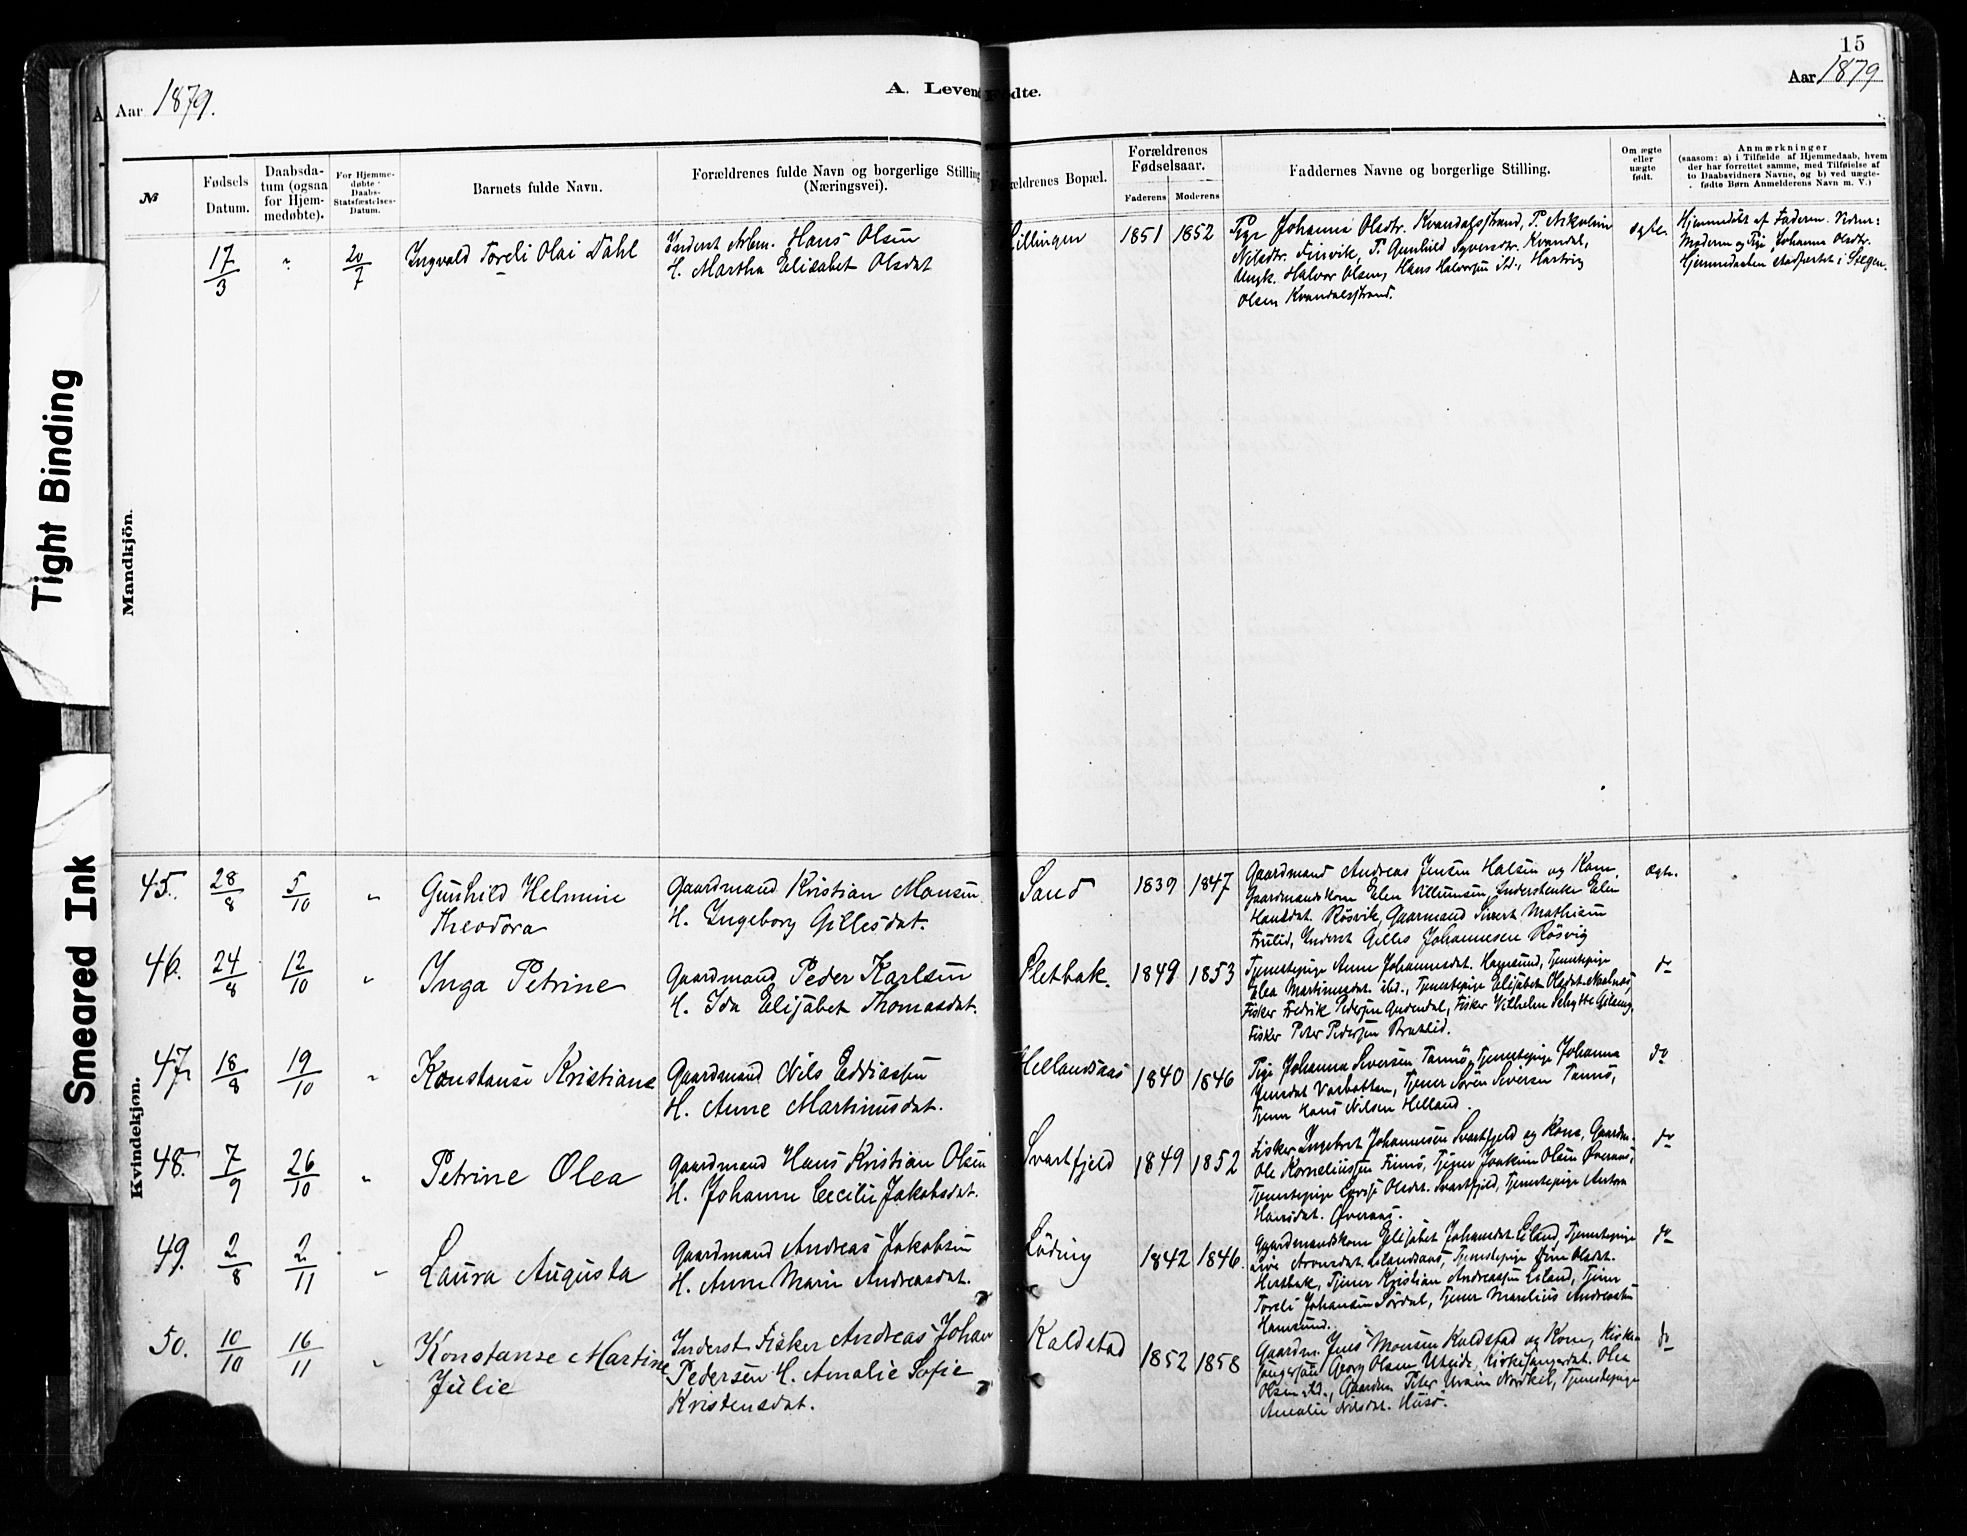 15
Aar 1879.
A. Levend Fødte.
Aar 1879
№
Fødsels Datum.
Daabsdatum (ogsaa for Hjemmedøbte).
For Hjemmedøbte: Daabs-Statsfæstelses-Datum.
Barnets fulde Navn.
Forældrenes fulde Navn og borgerlige Stilling (Næringsvei).
Forældrenes Bopæl.
Forældrenes Fødselsaar.
Faderens
Moderens
Faddernes Navne og borgerlige Stilling.
Om ægte eller uægte født.
Anmærkninger
(saasom: a) i Tilfælde af Hjemmedaab, hvem
der har forrettet samme, med Tilføielse af
to Daabsvidners Navne, og b) ved uægte-
fødte Børn Anmelderens Navn m. V.)
Mandkjön.
17/3 " 20/7 Ingvald Toreli Olai Dahl
Inderst Arbm. Hans Olsen
H. Martha Elisabet Olsdat
Lillingen 1851 1852
Pige Johanna Olsdtr. Kvandalsstrand, P.
Nilsdtr. Finvik, P. Gunhild Syversdtr. Kvandal,
Ungk. Halvor Olsen, Hans Halvorsen ibd., Hartvig
Olsen Kvandalsstrand.
ægte.
Hjemmedøbt af Faderen. Vidner:
Moderen og Pige Johanna Olsdtr.
Hjemmedaaben stadfæstet i Stegen.
Kvindekjön.
45. 28/8 5/10 " Gunhild Helmine
Theodora
Gaardmand Kristian Monsen
H. Ingeborg Gillesdat.
Sand 1839 1847
Gaardmand Andreas Jensen Halsen og Kone,
Gaardmandskone Elen Villumsen, Inderstenke Elen
Hansdat. Røsvik, Gaarmand Sivert Mathisen
Trulid, Inderst Gilles Johannesen Røsvig
ægte.
46. 24/8 12/10 " Inga Petrine
Gaardmand Peder Karlsen
H. Ida Elisabet Thomasdat.
Sletbak. 1849 1853
Tjenestepige Anne Johannesdat. Hamsund, Tjenestepige
Elea Martinusdat. ibd., Tjenestepige Elisabet Olsdat.
Fisker Fredrik Pedersen, Fisker Vilhelm Schytte
Fisker Peter Pedersen Bratlid.
do
47. 18/8 19/10 " Konstanse Kristiane
Gaardmand Nils Eddiassen
H. Anne Martinusdat.
Hellandsaas 1840 1846
Pige Johanna Siversen Tannø, Tjenestepige Johanna
Jensdat Varbotten, Tjener Søren Siversen Tannø,
Tjener Hans Nilsen Helland.
do
48. 7/9 26/10 " Petrine Olea
Gaardmand Hans Kristian Olsen
H. Johanne Cecilie Jakobsdat.
Svartfjeld 1849 1852
Fisker Ingebret Johannesen Svartfjeld og Kone, Gaardm.
Ole Korneliussen Finnø, Tjener Joakim Olsen Øveraas,
Tjenestepige Olsdat. Svartfjeld, Tjenestepige Antona
Hansdat. Øveraas.
do
49. 2/8 2/11 " Laura Augusta
Gaardmand Andreas Jakobsen
H. Anne Marie Andreasdat.
Løding 1842 1846.
Gaardmandskone Elisabet Johansdat. Eiland, Tjenestepige
Live Arvensdat. Eilandsaas, Tjenestepige Olsdat.
Hestbak, Tjener Kristian Andreassen Eiland, Tjener
Toreli Johansen Sørdal, Tjener Marelius Andreassen
Hamsund.
do
50. 10/10 16/11 " Konstanse Martine
Julie
Inderst Fisker Andreas Johan
Pedersen H. Amalie Sofie
Kristensdat.
Kaldstad 1852 1858
Gaardm. Jens Monsen Kaldstad og Kone, Kirke
sanger Georg Olsen Utheide, Kirkesangerdat. Olea
Olsen ibd., Gaardm. Peter Nordkil, Tjenestepige
Amalie Nilsdat. Husø.
do
Tight Binding
Smeared Ink